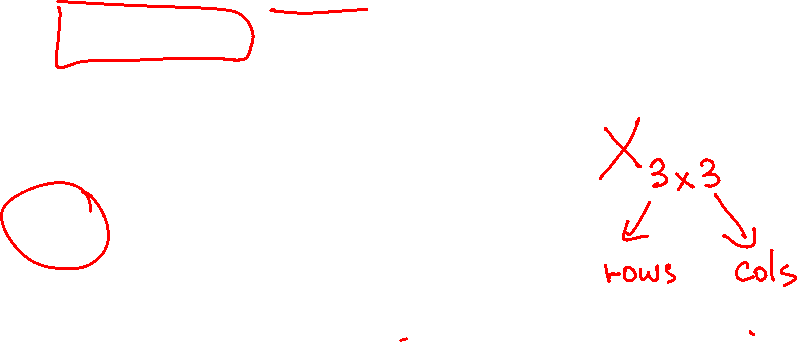 X3x3
rows cols